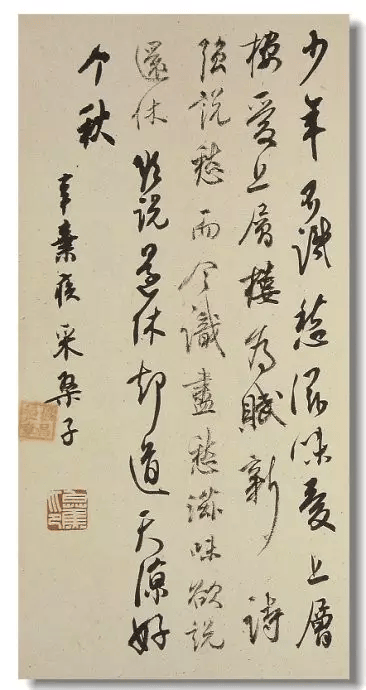 少年不識愁滋味愛上層
樓愛上層樓為賦新詩
強說愁而今識盡愁滋味欲說
還休欲說還休却道天涼好
个秋
辛棄疾采桑子